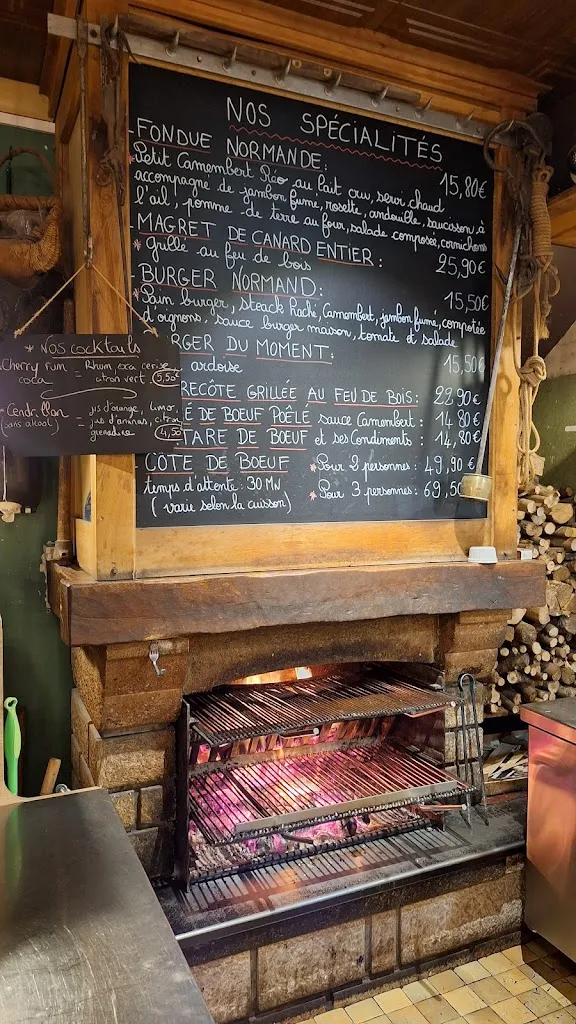 NOS SPÉCIALITÉS
- FONDUE NORMANDE:
* Petit Camembert Réo au lait cru, servi chaud 15,80€
accompagné de jambon fumé, rosette, andouille, saucisson à
l'ail, pomme-de terre au four, salade composée, cornichons
- MAGRET DE CANARD ENTIER:
* grillé au feu de bois 25,90€
- BURGER NORMAND: 15,50€
* Pain burger, steack haché, Camembert, jambon fumé, compotée
d'oignons, sauce burger maison, tomate et salade
RGER DU MOMENT:
ardoise 15,50€
RECÔTE GRILLÉE AU FEU DE BOIS: 23,90€
É DE BOEUF POÊLÉ sauce Camembert: 14,80€
TARE DE BOEUF et ses Condiments: 14,80€
CÔTE DE BOEUF * Pour 2 personnes: 49,90€
temps d'attente: 30 MN * Pour 3 personnes: 69,50
(varie selon la cuisson)
* NOS cocktails
Cherry rum = Rhum coca cerise
coca citron vert 5,50€
- Cendrillon = jus d'orange, limon,
(sans alcool) jus d'ananas, citron
grenadine 4,50